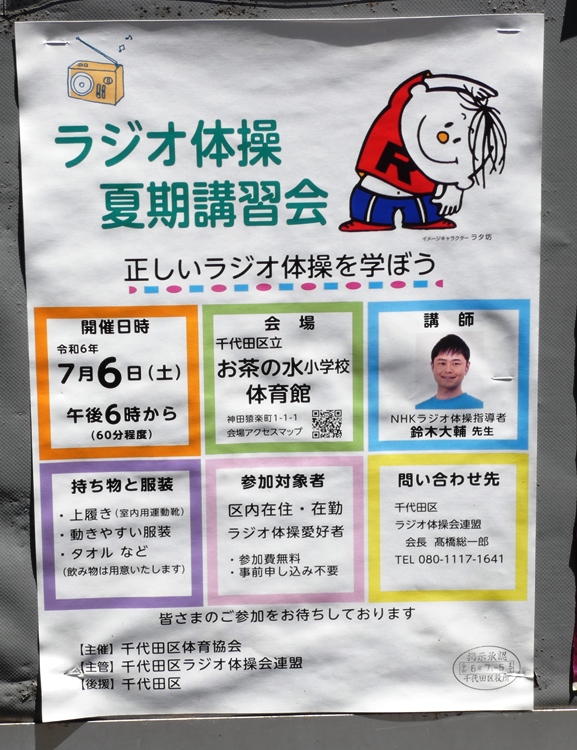 ラジオ体操
夏期講習会
イメージキャラクター ラタ坊
正しいラジオ体操を学ぼう
開催日時
令和6年
7月6日(土)
午後6時から
(60分程度)
会場
千代田区立
お茶の水小学校
体育館
神田猿楽町1-1-1
会場アクセスマップ
講師
NHKラジオ体操指導者
鈴木大輔 先生
持ち物と服装
・上履き(室内用運動靴)
・動きやすい服装
・タオル など
(飲み物は用意いたします)
参加対象者
区内在住・在勤
ラジオ体操愛好者
・参加費無料
・事前申し込み不要
問い合わせ先
千代田区
ラジオ体操会連盟
会長 髙橋総一郎
TEL 080-1117-1641
皆さまのご参加をお待ちしております
【主催】千代田区体育協会
【主管】千代田区ラジオ体操会連盟
【後援】千代田区
掲示承認
6.7.-5
千代田区役所
R